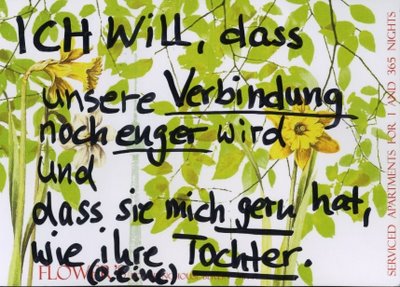 ICH WILL, dass
unsere Verbindung
noch enger wird
und
dass sie mich gern hat,
wie ihre Tochter.
(d.eine)
FLOW
SERVICED APARTMENTS FOR 1 AND 365 NIGHTS